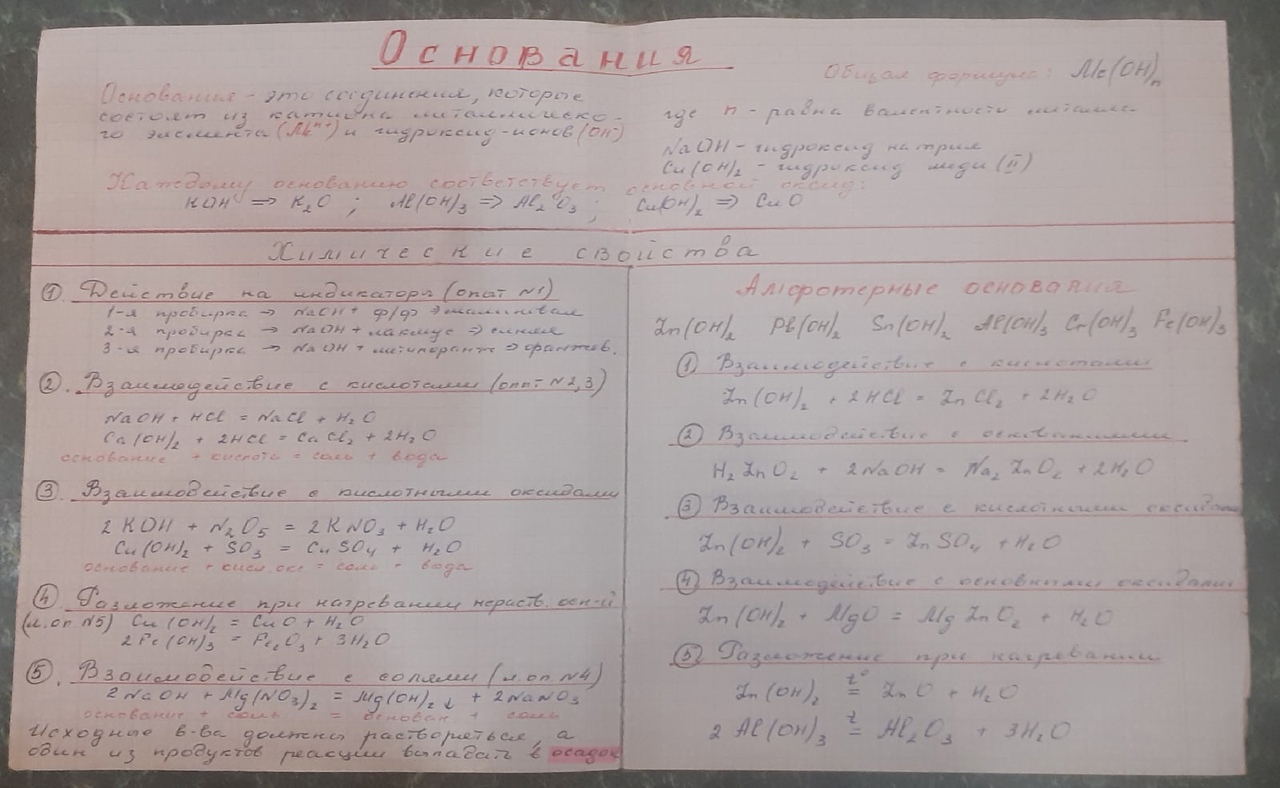 Основания
Общая формула: Me(OH)n
Основания - это соединения, которые
состоят из катиона металлическо-
го элемента (Meⁿ⁺) и гидроксид-ионов (OH⁻)
где n - равна валентности металла
NaOH - гидроксид натрия
Cu(OH)₂ - гидроксид меди (II)
Каждому основанию соответствует основной оксид:
KOH ⇒ K₂O ; Al(OH)₃ ⇒ Al₂O₃ ; Cu(OH)₂ ⇒ CuO
Химические свойства
① Действие на индикаторы (опыт №1)
1-я пробирка → NaOH + ф/ф ⇒ малиновая
2-я пробирка → NaOH + лакмус ⇒ синяя
3-я пробирка → NaOH + метилоранж ⇒ оранжев.
②. Взаимодействие с кислотами (опыт №2,3)
NaOH + HCl = NaCl + H₂O
Ca(OH)₂ + 2HCl = CaCl₂ + 2H₂O
основание + кислота = соль + вода
③. Взаимодействие с кислотными оксидами
2KOH + N₂O₅ = 2KNO₃ + H₂O
Cu(OH)₂ + SO₃ = CuSO₄ + H₂O
основание + кисл. окс = соль + вода
④ Разложение при нагревании нераств. осн-й
(л.оп №5) Cu(OH)₂ = CuO + H₂O
2Fe(OH)₃ = Fe₂O₃ + 3H₂O
⑤. Взаимодействие с солями (л.оп №4)
2NaOH + Mg(NO₃)₂ = Mg(OH)₂↓ + 2NaNO₃
основание + соль = основан + соль
Исходные в-ва должны растворяться, а
один из продуктов реакции выпадать в осадок
Амфотерные основания
Zn(OH)₂ Pb(OH)₂ Sn(OH)₂ Al(OH)₃ Cr(OH)₃ Fe(OH)₃
① Взаимодействие с кислотами
Zn(OH)₂ + 2HCl = ZnCl₂ + 2H₂O
② Взаимодействие с основаниями
H₂ZnO₂ + 2NaOH = Na₂ZnO₂ + 2H₂O
③ Взаимодействие с кислотными оксидами
Zn(OH)₂ + SO₃ = ZnSO₄ + H₂O
④ Взаимодействие с основными оксидами
Zn(OH)₂ + MgO = MgZnO₂ + H₂O
⑤ Разложение при нагревании
Zn(OH)₂ t°= ZnO + H₂O
2Al(OH)₃ t= Al₂O₃ + 3H₂O